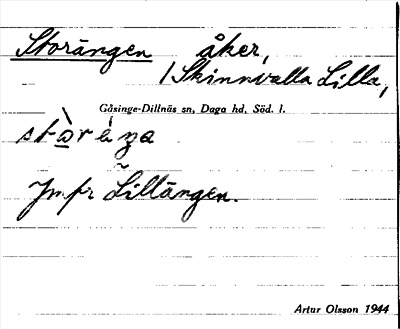 Storängen åker,
/Skinnvalla Lilla,
Gåsinge-Dillnäs sn, Daga hd, Söd. l.
Jmfr Lillängen.
Artur Olsson 1944